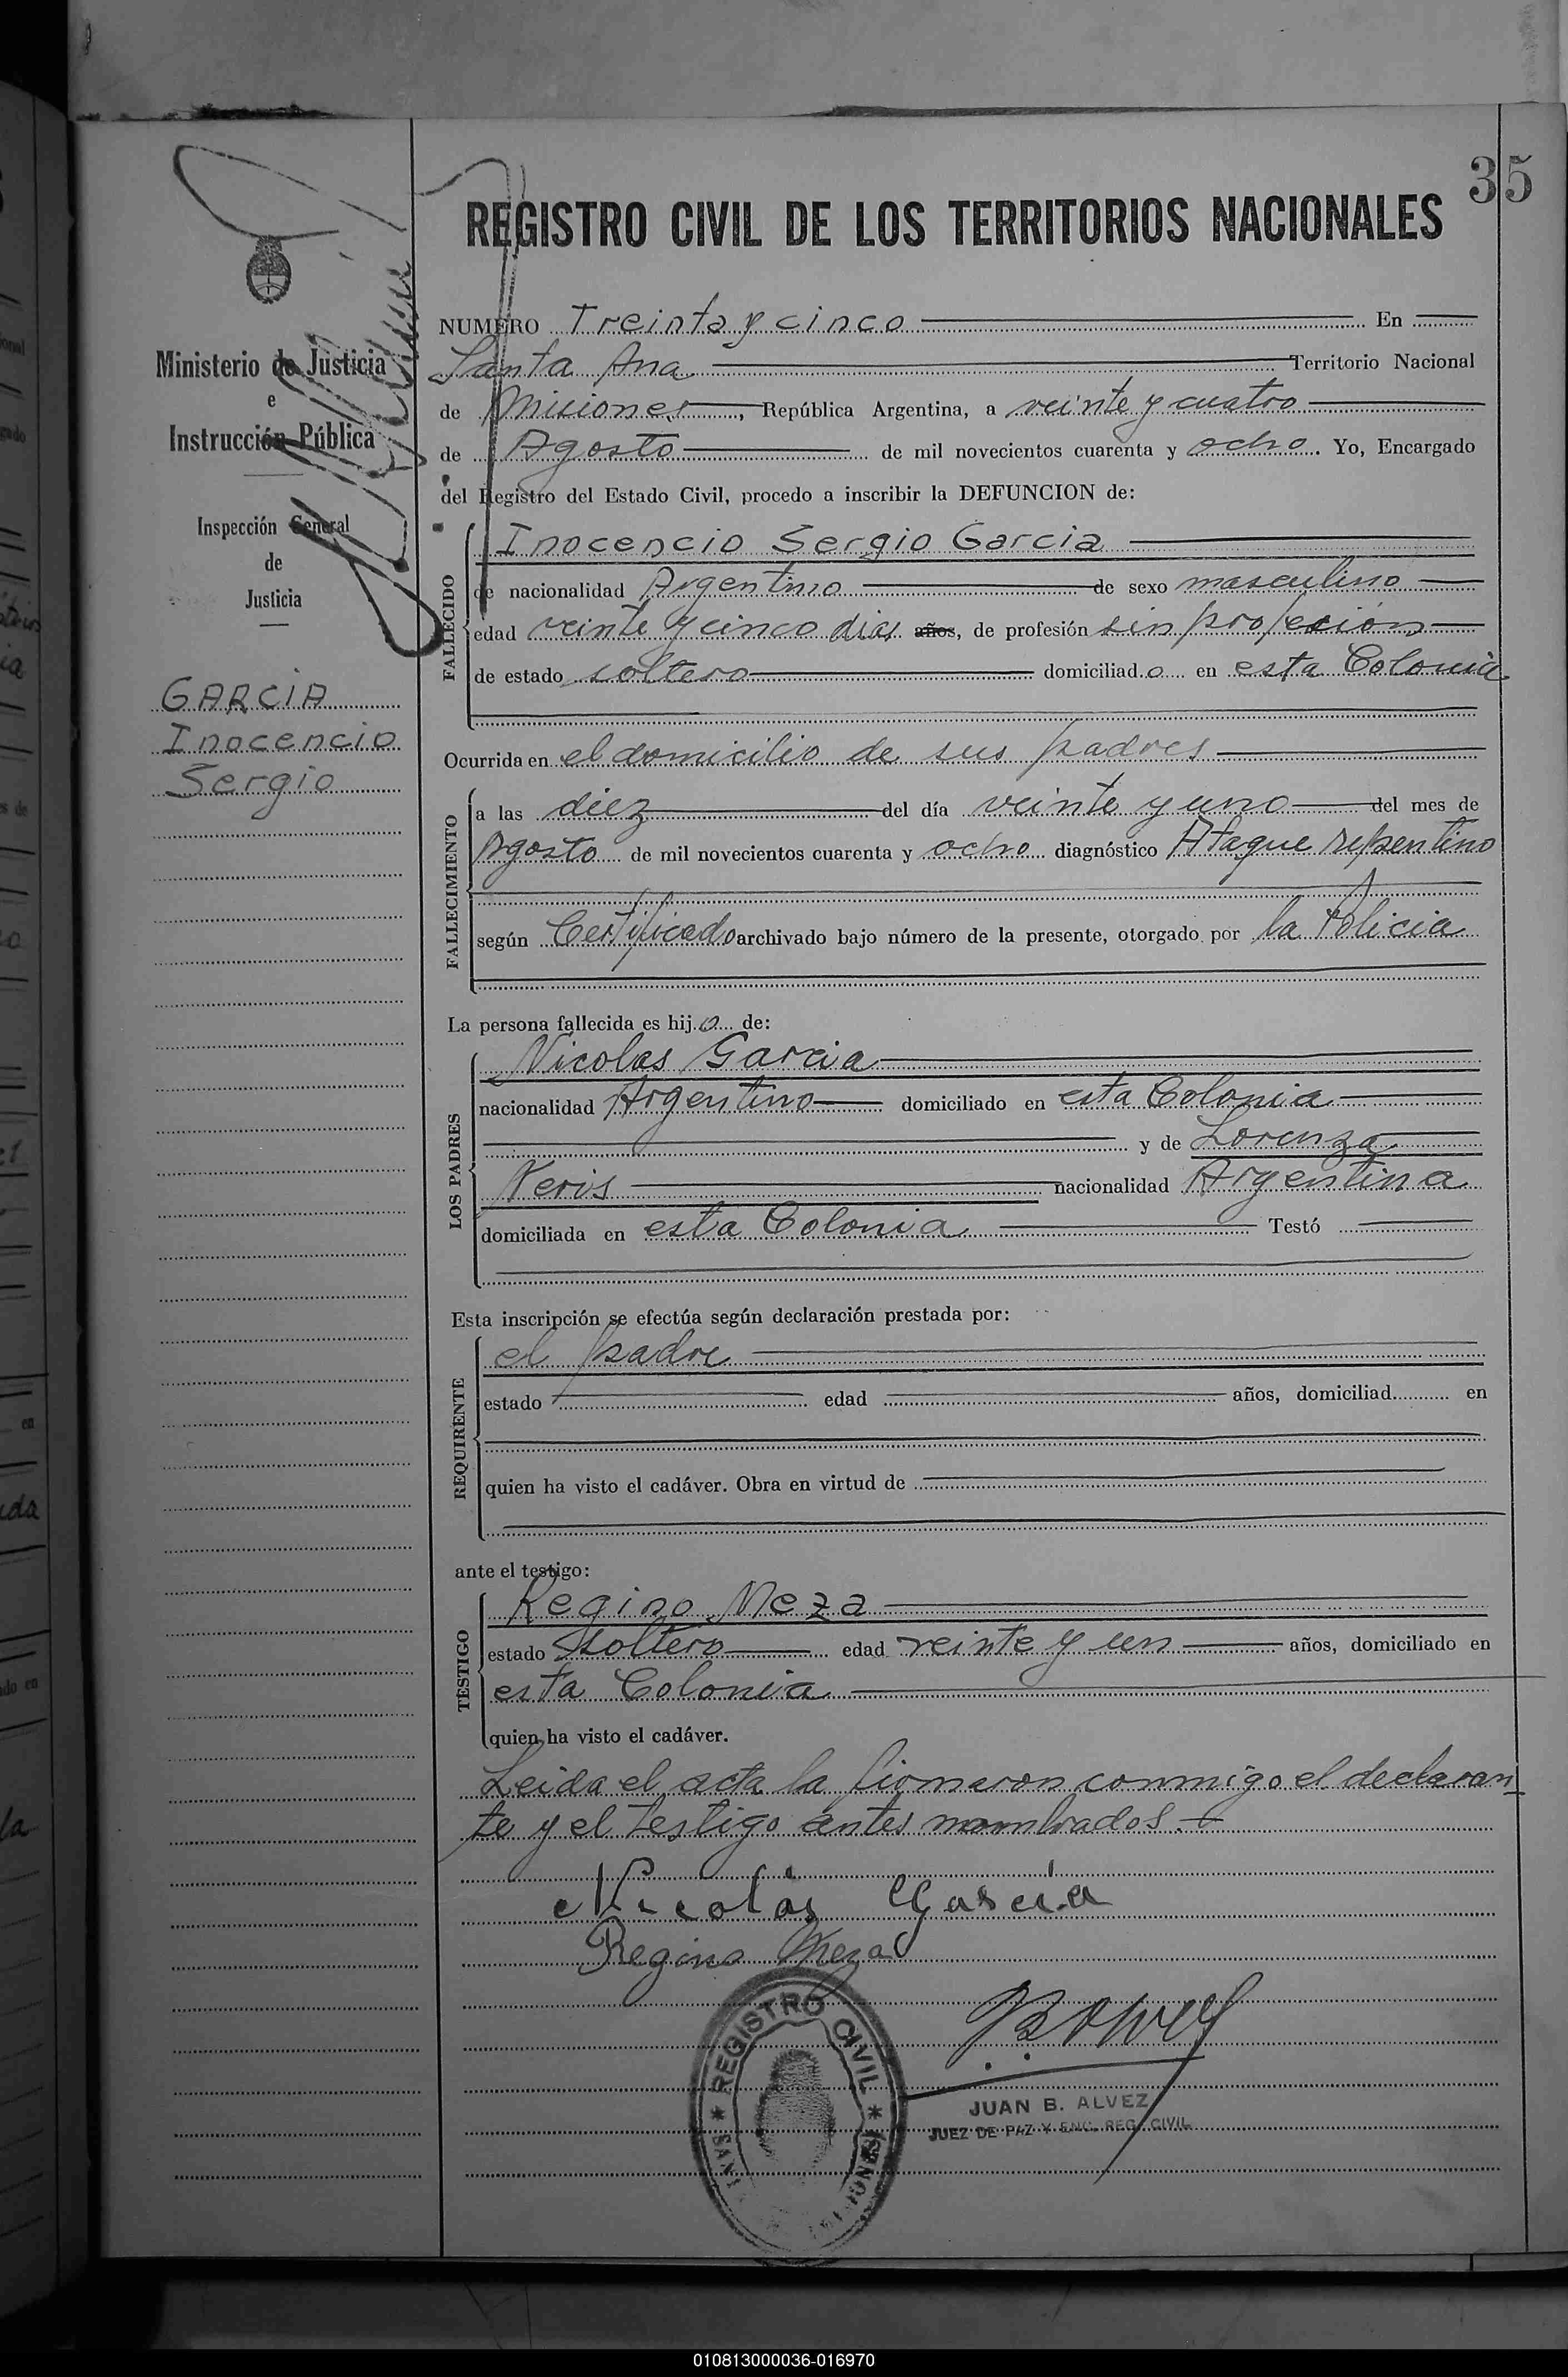 35
REGISTRO CIVIL DE LOS TERRITORIOS NACIONALES
Ministerio de Justicia
e
Instrucción Pública
Inspección General
de
Justicia
GARCIA
Inocencio
Sergio
NUMERO Treinta y cinco En
Santa Ana Territorio Nacional
de Misiones, República Argentina, a veinte y cuatro
de Agosto de mil novecientos cuarenta y ocho. Yo, Encargado
del Registro del Estado Civil, procedo a inscribir la DEFUNCION de:
FALLECIDO
Inocencio Sergio Garcia
de nacionalidad Argentino de sexo masculino
edad veinte y cinco dias años, de profesión sin profesión
de estado soltero domiciliado en esta Colonia
Ocurrida en el domicilio de sus padres
FALLECIMIENTO
a las diez del día veinte y uno del mes de
Agosto de mil novecientos cuarenta y ocho diagnóstico Ataque repentino
según Certificado archivado bajo número de la presente, otorgado por la Policia
La persona fallecida es hijo de:
LOS PADRES
Nicolas Garcia
nacionalidad Argentino domiciliado en esta Colonia
y de Lorenza
Neris nacionalidad Argentina
domiciliada en esta Colonia Testó
Esta inscripción se efectúa según declaración prestada por:
REQUIRENTE
el padre
estado edad años, domiciliad en
quien ha visto el cadáver. Obra en virtud de
ante el testigo:
TESTIGO
Regino Meza
estado soltero edad veinte y un años, domiciliado en
esta Colonia
quien ha visto el cadáver.
Leida el acta la firmaron conmigo el declaran
te y el testigo antes nombrados.
Nicolás García
Regino Meza
REGISTRO CIVIL
JUAN B. ALVEZ
JUEZ DE PAZ Y ENC. REG. CIVIL
010813000036-016970